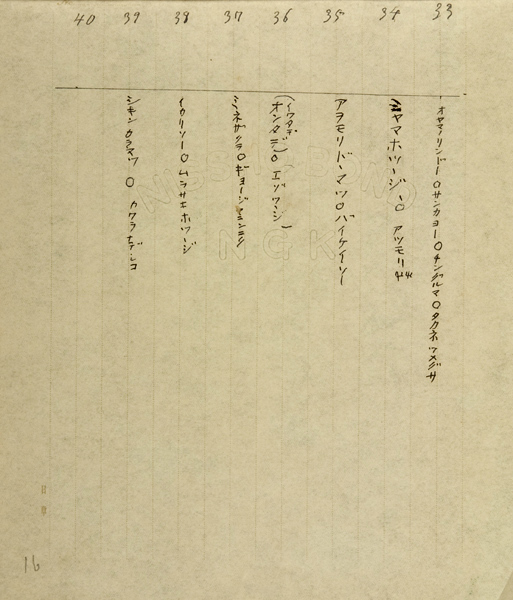 33 オヤマノリンドー○サンカヨー○チングルマ○タカネツメグサ
34 ミヤマホツージ○ アツモリ
35 アヲモリドーマツ○バイケイソー
36 (イワタデ オンタデ)○ エゾツージ
37 ミネザクラ○ギョージャニンニク
38 イカリソー○ムラサキホツージ
39 シキンカラマツ ○ カワラナデシコ
40
NGK
16